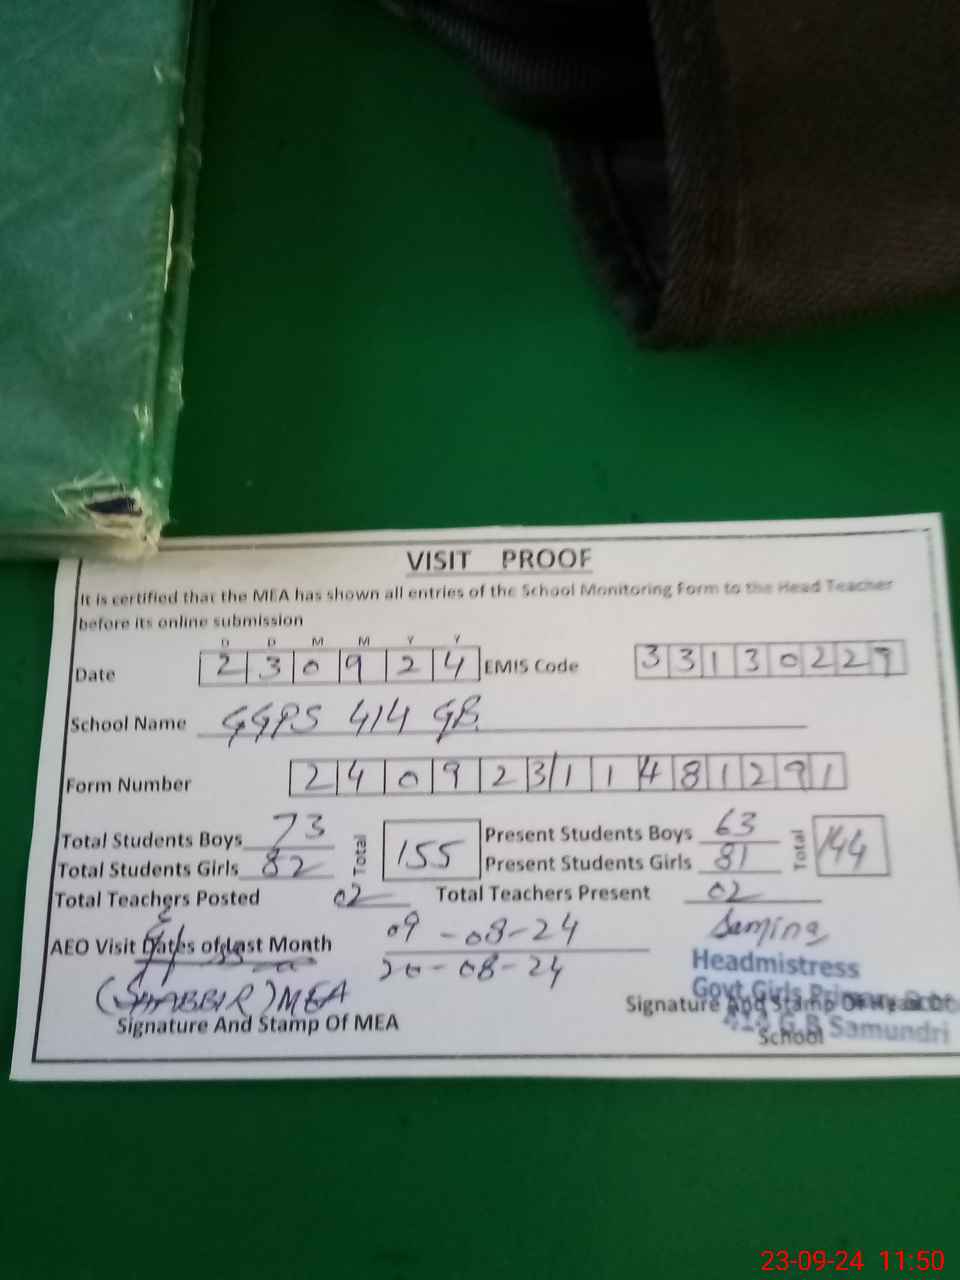 VISIT PROOF
It is certified that the MEA has shown all entries of the School Monitoring Form to the Head Teacher
before its online submission
D D M M Y Y
Date 2 3 0 9 2 4 EMIS Code 3 3 1 3 0 2 2 9
School Name GGPS 414 GB
Form Number 2 4 0 9 2 3 1 1 4 8 1 2 9 1
Total Students Boys 73 Total 155 Present Students Boys 63 Total 144
Total Students Girls 82 Present Students Girls 81
Total Teachers Posted 02 Total Teachers Present 02
AEO Visit Dates of Last Month 09-08-24
20-08-24
Headmistress
Govt Girls Primary
(SHABBIR) MEA
Signature And Stamp Of Head Of
414 G.B Samundri
Signature And Stamp Of MEA
School
23-09-24 11:50